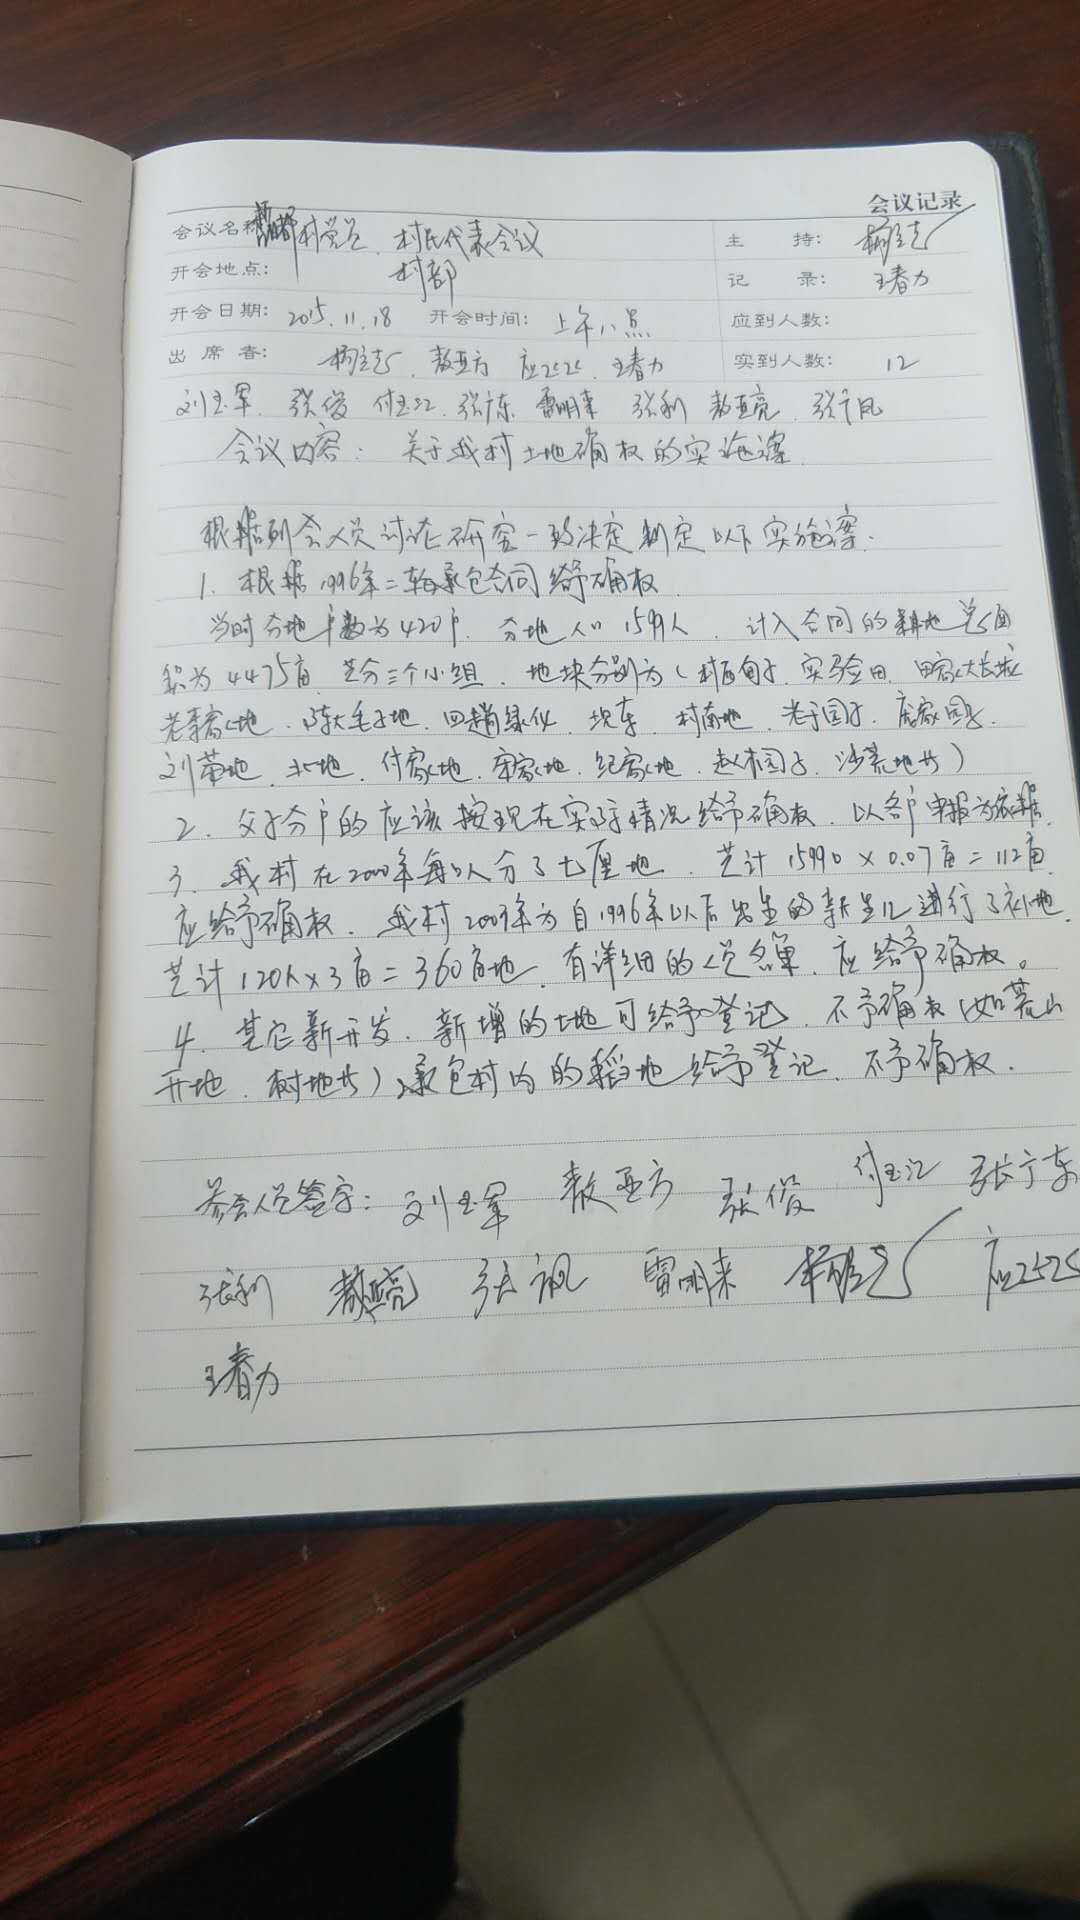 会议记录
会议名称: 村党员、村民代表会议 主 持:
开会地点: 村部 记 录: 王春力
开会日期: 2015.11.18 开会时间: 上午八点 应到人数:
出 席 者: 敖亚方 王春力 实到人数: 12
刘玉军 张俊 付玉江 张广东 雷明来 张利 敖亚亮
会议内容: 关于我村土地确权的实施方案
根据到会人员讨论研究一致决定制定以下实施方案:
1. 根据1996年二轮承包合同给予确权
当时分地户数为420户. 分地人口1599人. 计入合同的耕地总面
积为4475亩 共分三个小组. 地块分别为(村西甸子. 实验田.
老李家地. 坝东. 村南地. 老于园子. 庞家园子.
北地. 付家地. 宋家地. 纪家地. 赵木园子. 沙荒地等)
2. 父子分户的应该按现在实际情况给予确权. 以各户申报为依据.
3. 我村在2000年每口人分了七厘地. 共计1599口×0.07亩=112亩
应给予确权. 我村2009年为自1996年以后出生的新生儿进行了补地.
共计120人×3亩=360亩地. 有详细的人员名单. 应给予确权。
4. 其它新开发. 新增的土地可给予登记. 不予确权(如荒山
开地. 树地等)承包村内的稻地给予登记. 不予确权.
参会人员签字: 刘玉军 敖亚方 张俊 付玉江 张广东
张利 敖亚亮 雷明来
王春力